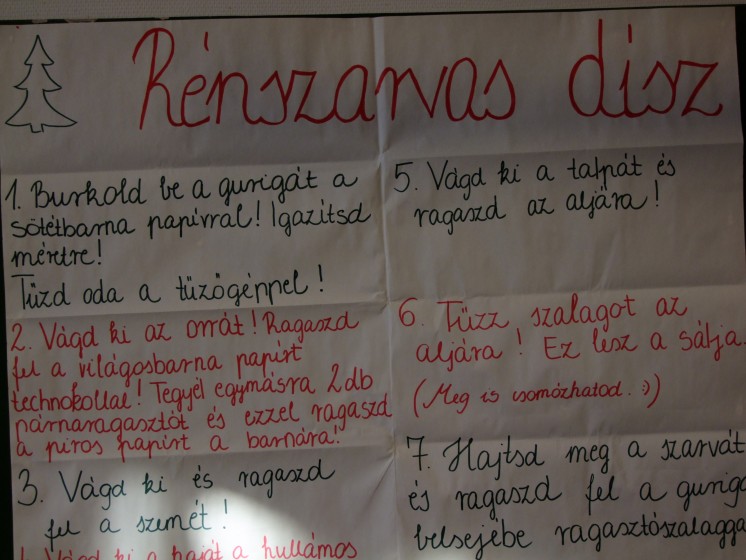 Rénszarvas dísz
1. Burkold be a gurigát a
sötétbarna papírral! Igazítsd
méretre!
Tűzd oda a tűzőgéppel!
2. Vágd ki az orrát! Ragaszd
fel a világosbarna papírt
technokollal! Tegyél egymásra 2db
párnaragasztót és ezzel ragaszd
a piros papírt a barnára!
3. Vágd ki és ragaszd
fel a szemét!
4. Vágd ki a haját a hullámos
5. Vágd ki a talpát és
ragaszd az aljára!
6. Tűzz szalagot az
aljára! Ez lesz a sálja.
(Meg is csomózhatod. :))
7. Hajtsd meg a szarvát
és ragaszd fel a guriga
belsejébe ragasztószalagga